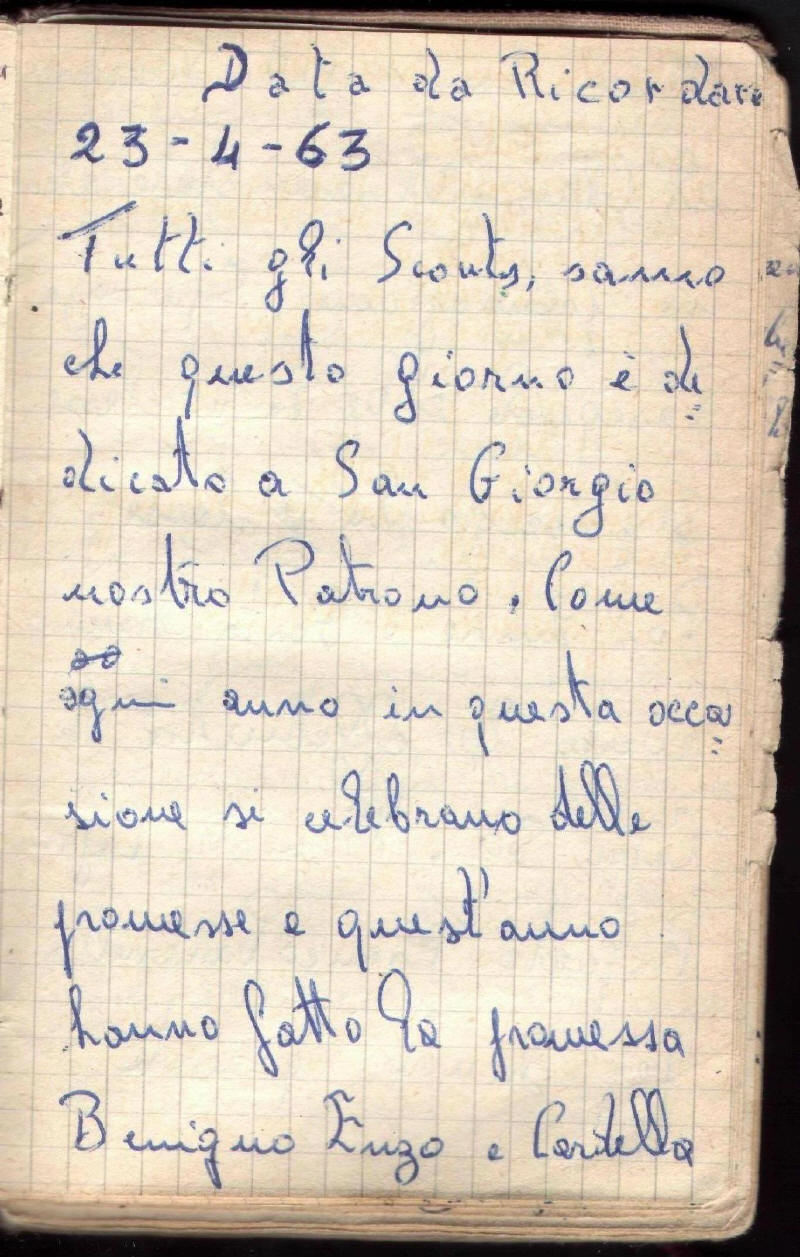 Data da Ricordare
23-4-63
Tutti gli Scouts, sanno
che questo giorno è de=
dicato a San Giorgio
nostro Patrono. Come
ogni anno in questa occa=
sione si celebrano delle
promesse e quest'anno
hanno fatto la promessa
Benigno Enzo e Cardella